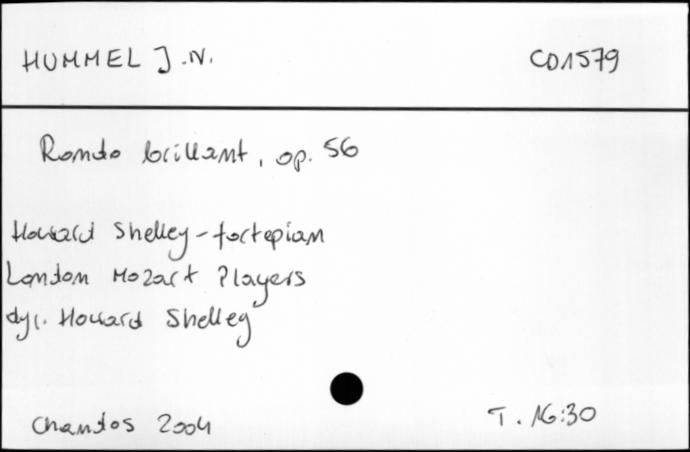 HUMMEL J.N. CD1579
Rondo brillant, op. 56
Howard Shelley - fortepian
London Mozart Players
dyr. Howard Shelley
Chandos 2004 T. 16:30